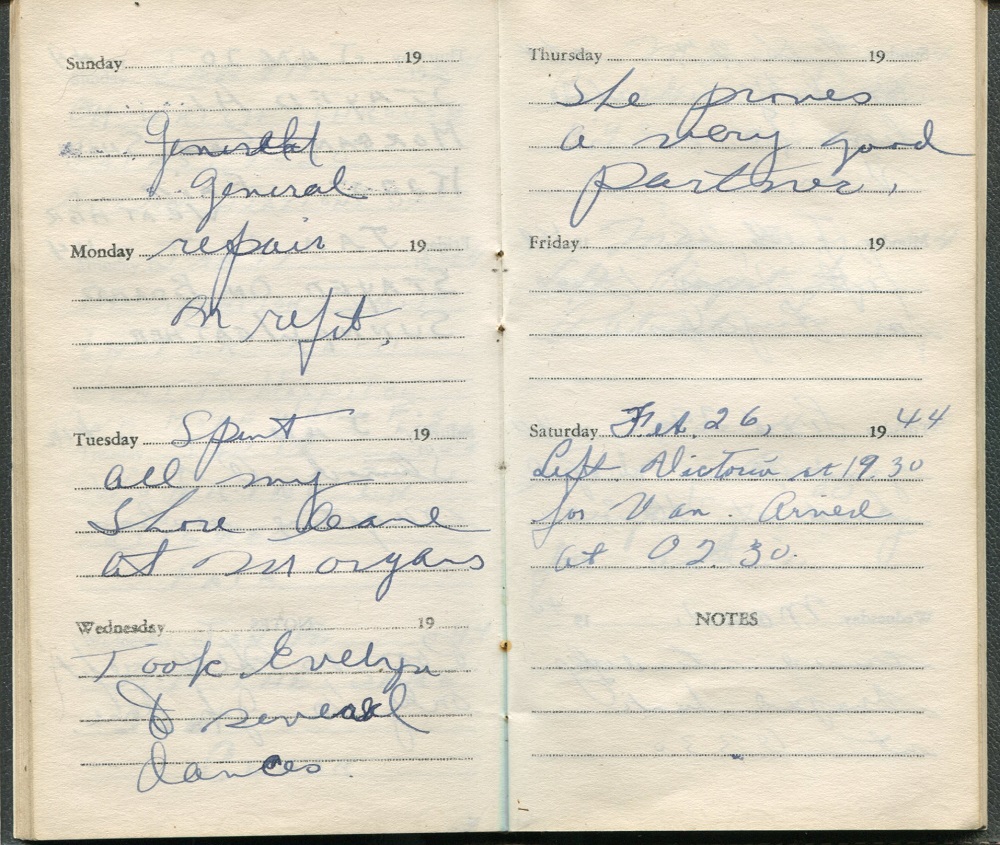 Sunday 19
General
general
Monday repair 19
In refit,
Tuesday Spent 19
all my
Shore leave
at Morgans
Wednesday 19
Took Evelyn
to several
dances
Thursday 19
She proves
a very good
partner.
Friday 19
Saturday Feb. 26, 19 44
Left Victoria at 19.30
for Van. Arived
at 02.30.
NOTES